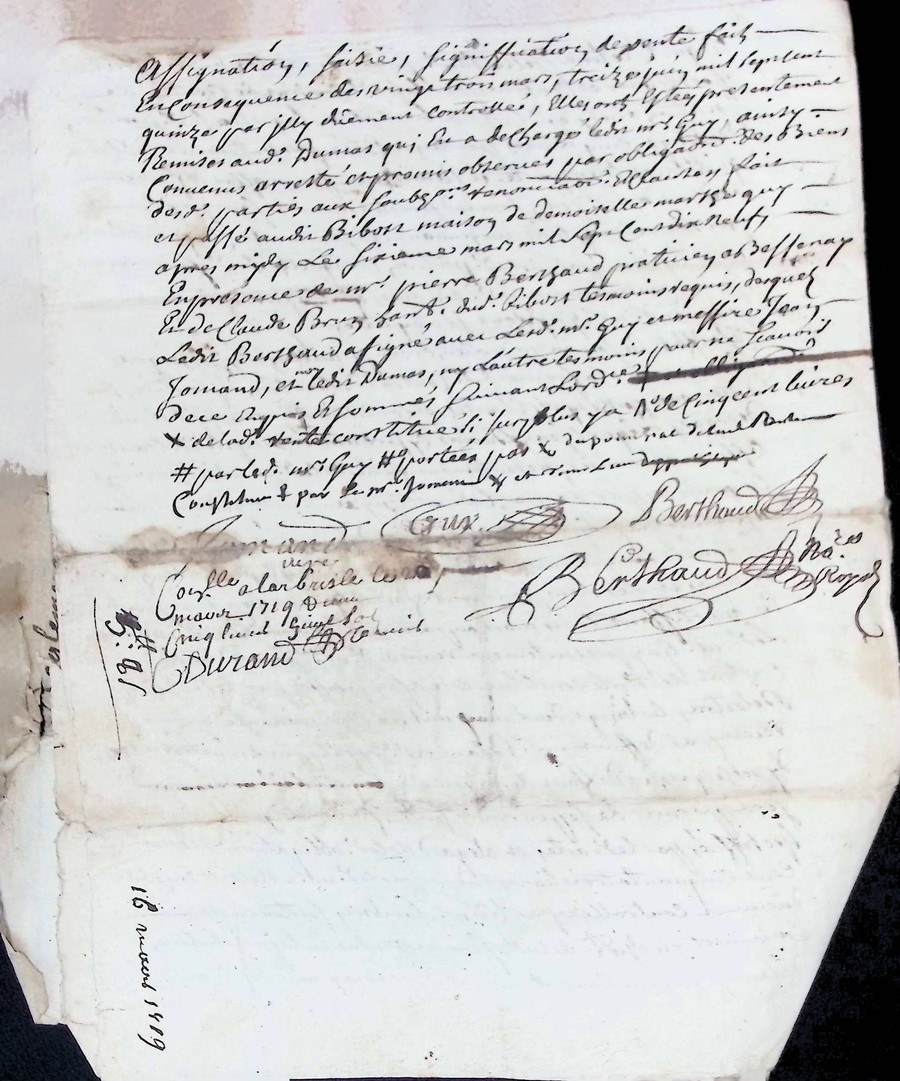 Assignation, saisie, signiffication de vente fait
En consequence des vingt trois mars, treize juin mil sept cent
quinze par Jlly düement controllés, Elles ont Estées presentement
Remises audt. Dumas qui En a dechargé ledit mr. Guy, ainsy
Convenus arresté et promis observer par obligaõn. des Biens
desd. parties aux soubzons. renonciaõn. Et Clauses fait
et passé audit Bibost maison de demoiselle marthe guy
apres midy Le sixieme mars mil sept Cens dix neuf,
En presence de mr. pierre Berthaud praticien a Bessenay
Et de Claude Brun habt. dud. Bibost tesmoins requis, desquels
Ledit Berthaud a signé avec Lesd. mr. Guy et messire Jean
Jomand, et non ledit Dumas, ny L'autre tesmoins pour ne sçavoir
de ce Enquis Et sommés suivant Lord.e
x de lad. vente constitué si surplus y a № de Cinq cent livres
# par led. mr. Guy # portées pas x du
Constitué par le mr. Jomand
Jomand Guy Berthaud
Coñlle a larbresle le
mars 1719 Reçu
Cinq livres sols
Durand Commis
Berthaud No.re Royal
16 mars 1719